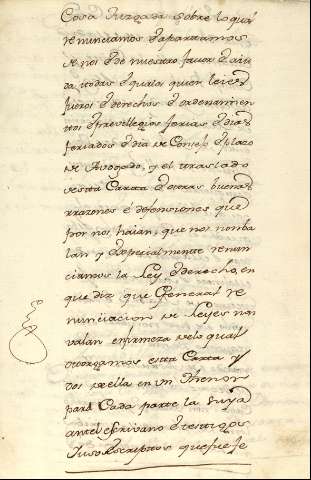 Cosa Juzgada sobre lo qual
renunciamos E apartamos
de nos E de nuestro favor E aiu
da, todas E quales quier leies,
fueros E derechos E ordenamien
ttos E previllegios ferias E dias
feriados E dia de Consejo E plazo
de Avogado, y el traslado
de esta Carta E otras buenas
rrazones é defensiones que
por nos haian, que nos non ba
lan y Especialmente renun
ciamos la Ley E derecho, en
que diz que General re
nunciacion de Leyes non
valan enfirmeza de lo qual
otorgamos esta Carta y
dos de ella en un thenor
para Cada parte la suya
ante el escrivano E testigos
Juso Escriptos que fue fe